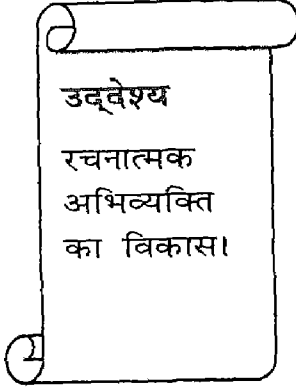 उद्देश्य
रचनात्मक
अभिव्यक्ति
का विकास।